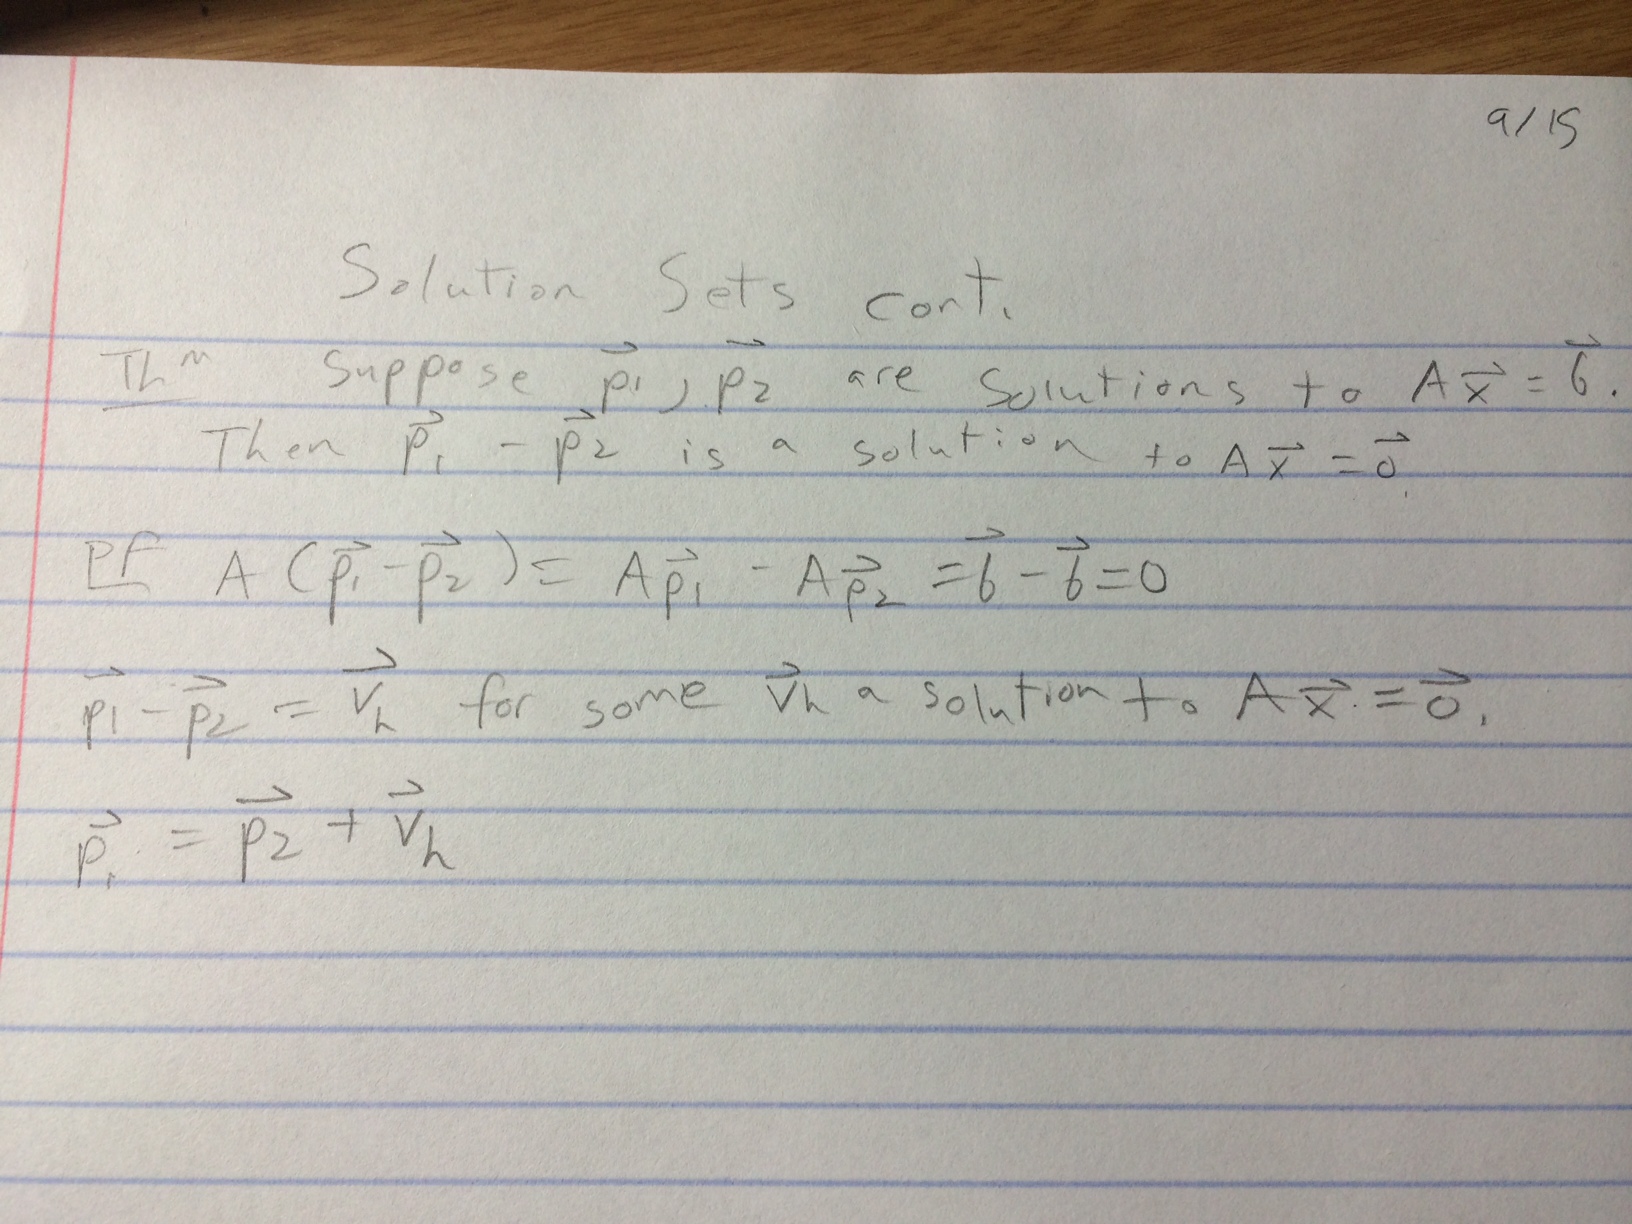 9/15
Solution Sets cont.
Thm Suppose p⃗1, p⃗2 are solutions to Ax⃗ = b⃗.
Then p⃗1 - p⃗2 is a solution to Ax⃗ = 0⃗.
Pf A(p⃗1 - p⃗2) = Ap⃗1 - Ap⃗2 = b⃗ - b⃗ = 0
p⃗1 - p⃗2 = v⃗h for some v⃗h a solution to Ax⃗ = 0⃗.
p⃗1 = p⃗2 + v⃗h